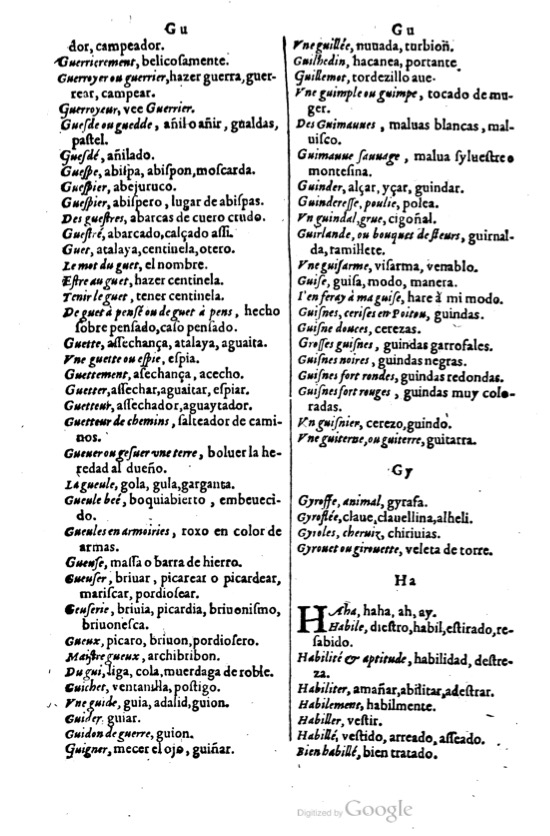 Gu
dor, campeador.
Guerrierement, belicosamente.
Guerroyer ou guerrier, hazer guerra, guer-
rear, campear.
Guerroyeur, vee Guerrier.
Guesde ou guedde, añil o añir, gualdas,
pastel.
Guesdé, añilado.
Guespe, abispa, abispon, moscarda.
Guespier, abejuruco.
Guespier, abispero, lugar de abispas.
Des guestres, abarcas de cuero crudo.
Guestré, abarcado, calçado assi.
Guet, atalaya, centinela, otero.
Le mot du guet, el nombre.
Estre au guet, hazer centinela.
Tenir le guet, tener centinela.
De guet à pensé ou de guet à pens, hecho
sobre pensado, caso pensado.
Guette, assechança, atalaya, aguaita.
Vne guette ou espie, espia.
Guettement, assechança, acecho.
Guetter, assechar, aguaitar, espiar.
Guetteur, assechador, aguaytador.
Guetteur de chemins, salteador de cami-
nos.
Gueuer ou gesuer vne terre, boluer la he-
redad al dueño.
La gueule, gola, gula, garganta.
Gueule beé, boquiabierto, embeueci-
do.
Gueules en armoiries, roxo en color de
armas.
Gueuse, massa o barra de hierro.
Gueuser, briuar, picarear o picardear,
mariscar, pordiosear.
Geuserie, briuia, picardia, briuonismo,
briuonesca.
Gueux, picaro, briuon, pordiosero.
Maistre gueux, archibribon.
Du gui, liga, cola, muerdaga de roble.
Guichet, ventanilla, postigo.
Vne guide, guia, adalid, guion.
Guider, guiar.
Guidon de guerre, guion.
Guigner, mecer el ojo, guiñar.
Gu
Vne guillée, nuuada, turbioñ.
Guilhedin, hacanea, portante
Guillemot, tordezillo aue.
Vne guimple ou guimpe, tocado de mu-
ger.
Des Guimauues, maluas blancas, mal-
uisco.
Guimauue sauuage, malua syluestre o
montesina.
Guinder, alçar, yçar, guindar.
Guinderesse, poulie, polea.
Vn guindal, grue, cigoñal.
Guirlande, ou bouques de fleurs, guirnal-
da, ramillete.
Vne guisarme, visarma, venablo.
Guise, guisa, modo, manera.
I'en feray à ma guise, hare à mi modo.
Guisnes, cerises en Poitou, guindas.
Guisne douces, cerezas.
Grosses guisnes, guindas garrofales.
Guisnes noires, guindas negras.
Guisnes fort rondes, guindas redondas.
Guisnes fort rouges, guindas muy colo-
radas.
Vn guisnier, cerezo, guindo.
Vne guiterne, ou guiterre, guitarra.
Gy
Gyroffe, animal, gyrafa.
Gyroflée, claue, clauellina, alheli.
Gyroles, cheruiz, chiriuias.
Gyrouet ou girouette, veleta de torre.
Ha
HAha, haha, ah, ay.
Habile, diestro, habil, estirado, re-
sabido.
Habilité & aptitude, habilidad, destre-
za.
Habiliter, amañar, abilitar, adestrar.
Habilement, habilmente.
Habiller, vestir.
Habillé, vestido, arreado, asseado.
Bien habillé, bien tratado.
Digitized by Google